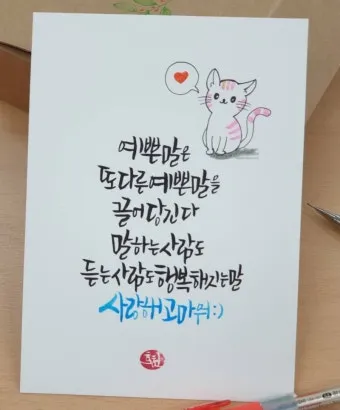 예쁜말은
또다른예쁜말을
끌어당긴다
말하는사람도
듣는사람도행복해지는말
사랑해고마워:)